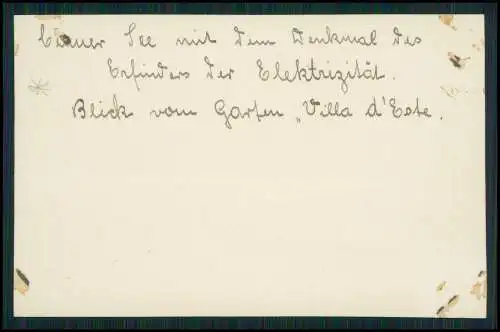 Comer See mit dem Denkmal des
Erfinders der Elektrizität.
Blick vom Garten „Villa d'Este.